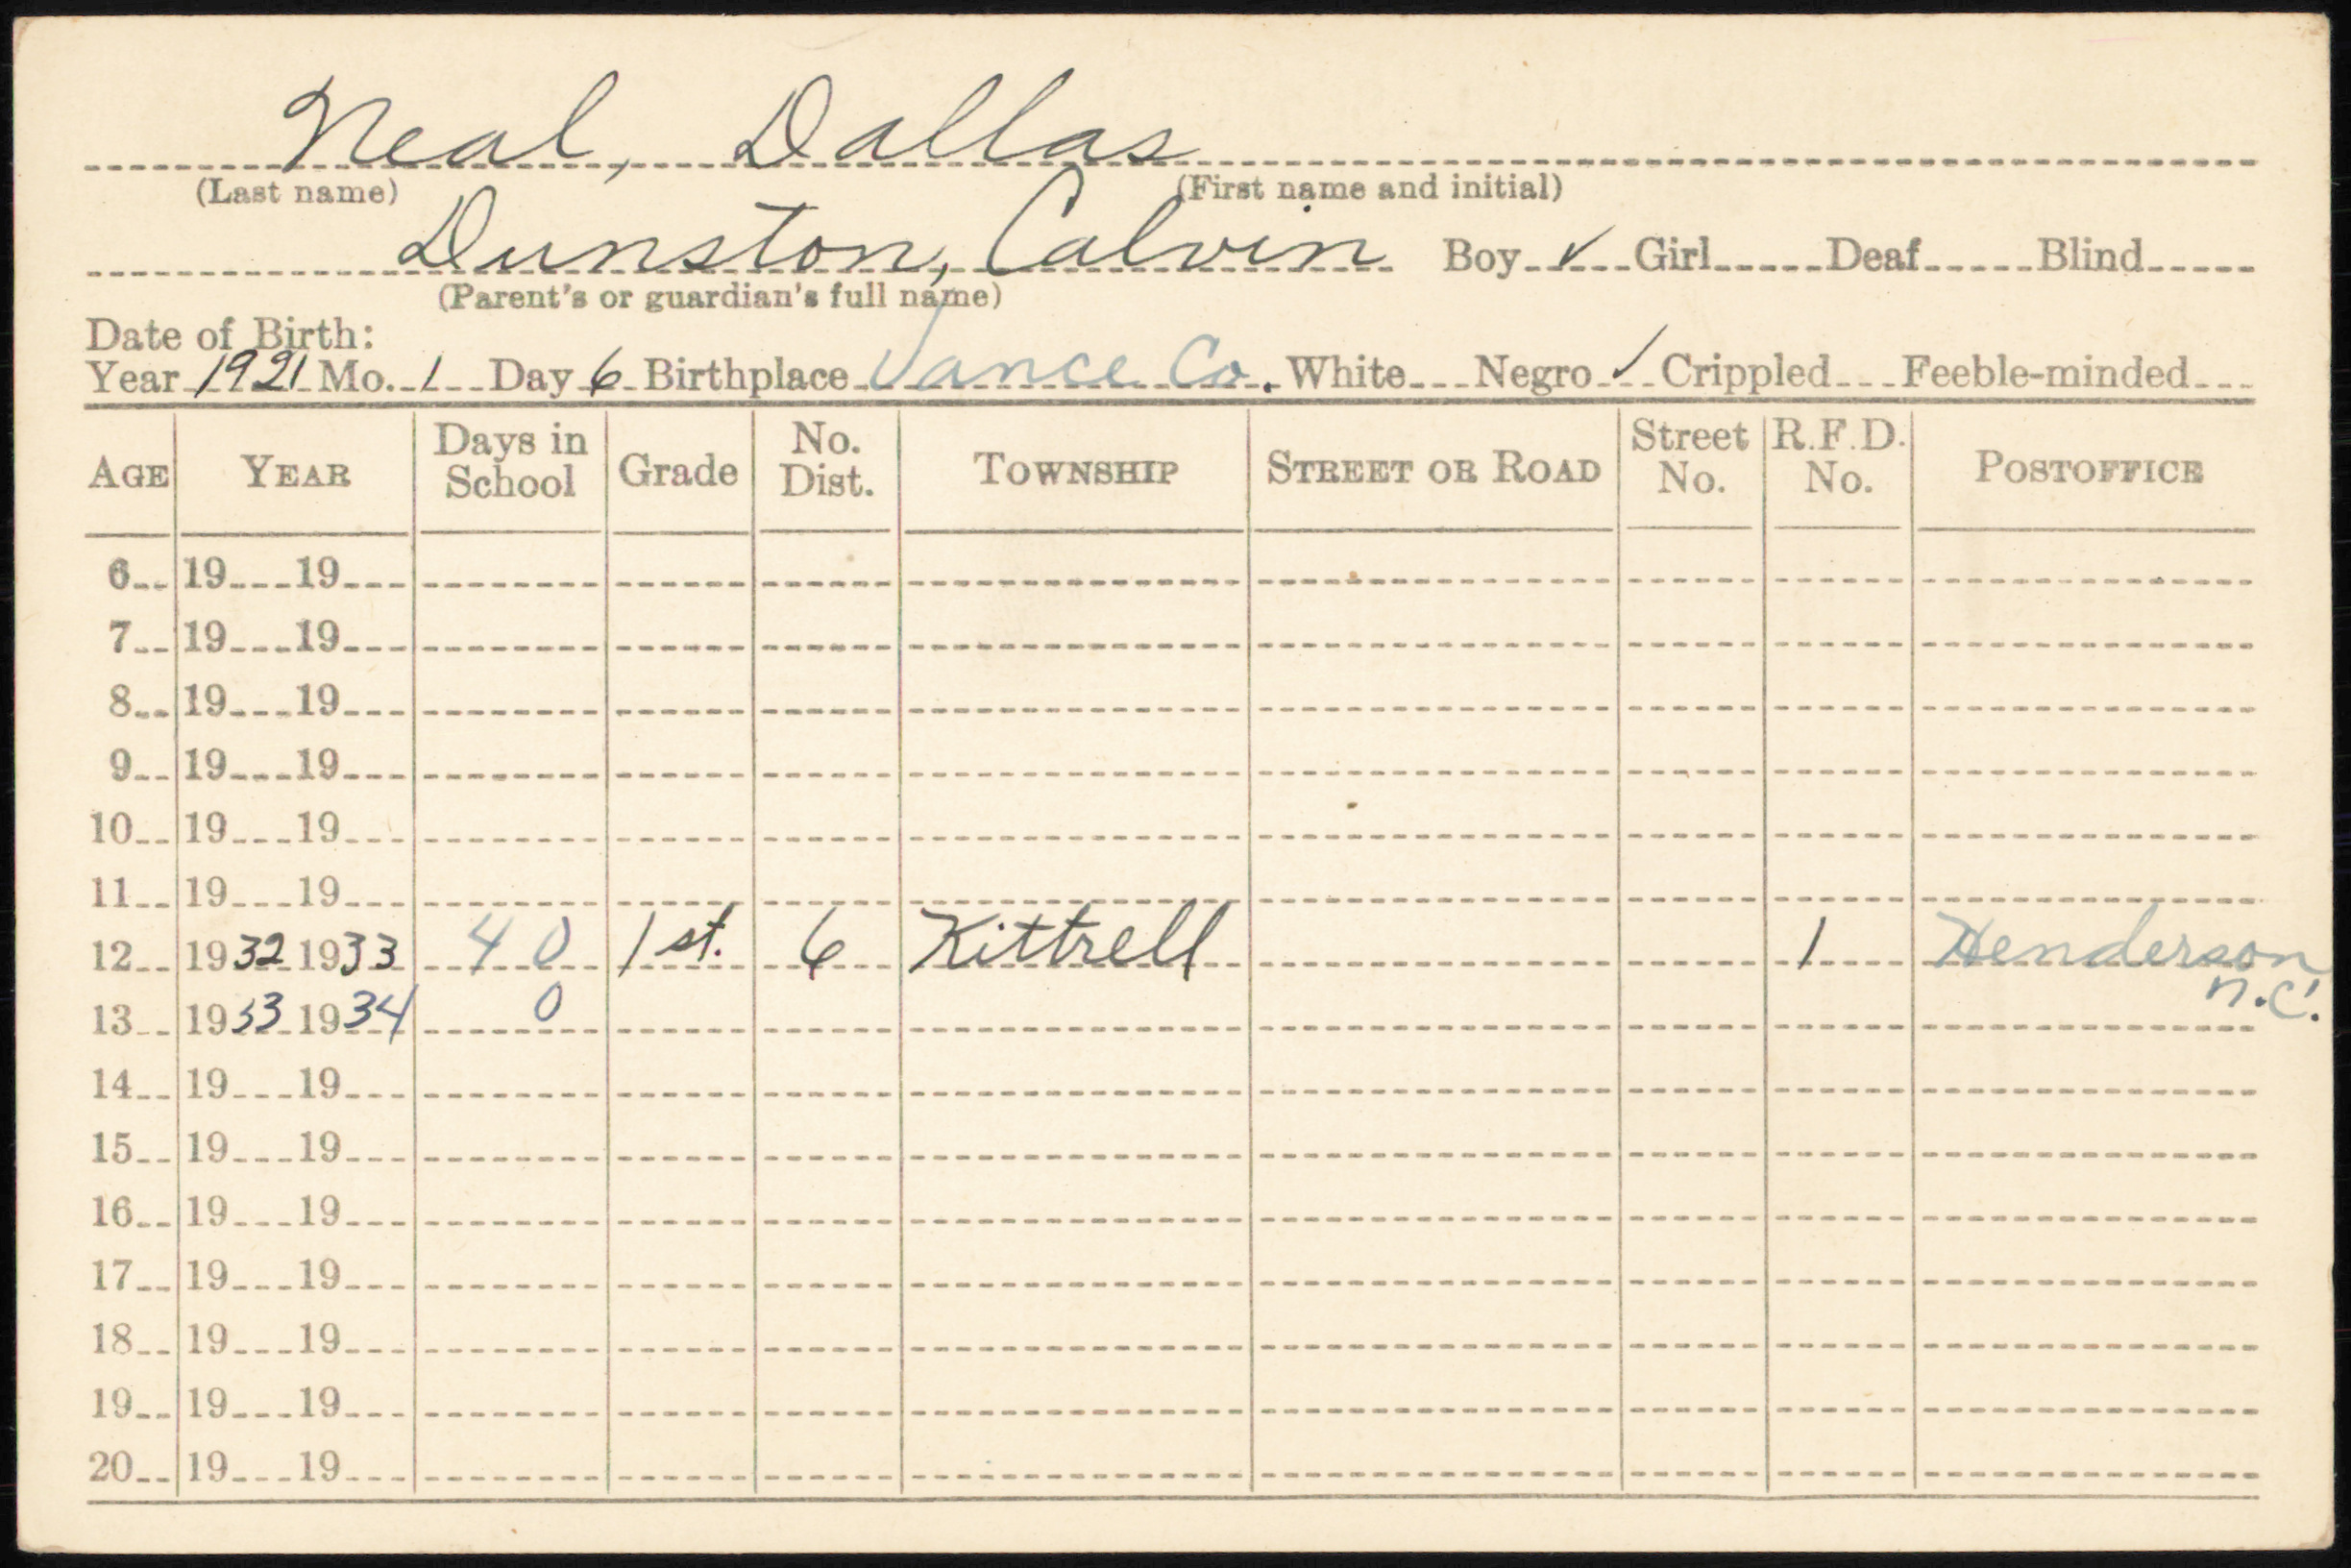 Neal, Dallas
(Last name) (First name and initial)
Dunston, Calvin Boy ✓ Girl Deaf Blind
(Parent's or guardian's full name)
Date of Birth:
Year 1921 Mo. 1 Day 6 Birthplace Vance Co. White Negro ✓ Crippled Feeble-minded
AGE YEAR Days in School Grade No. Dist. TOWNSHIP STREET OR ROAD Street No. R.F.D. No. POSTOFFICE
6 19 19
7 19 19
8 19 19
9 19 19
10 19 19
11 19 19
12 1932 1933 40 1st. 6 Kittrell 1 Henderson N.C.
13 1933 1934 0
14 19 19
15 19 19
16 19 19
17 19 19
18 19 19
19 19 19
20 19 19